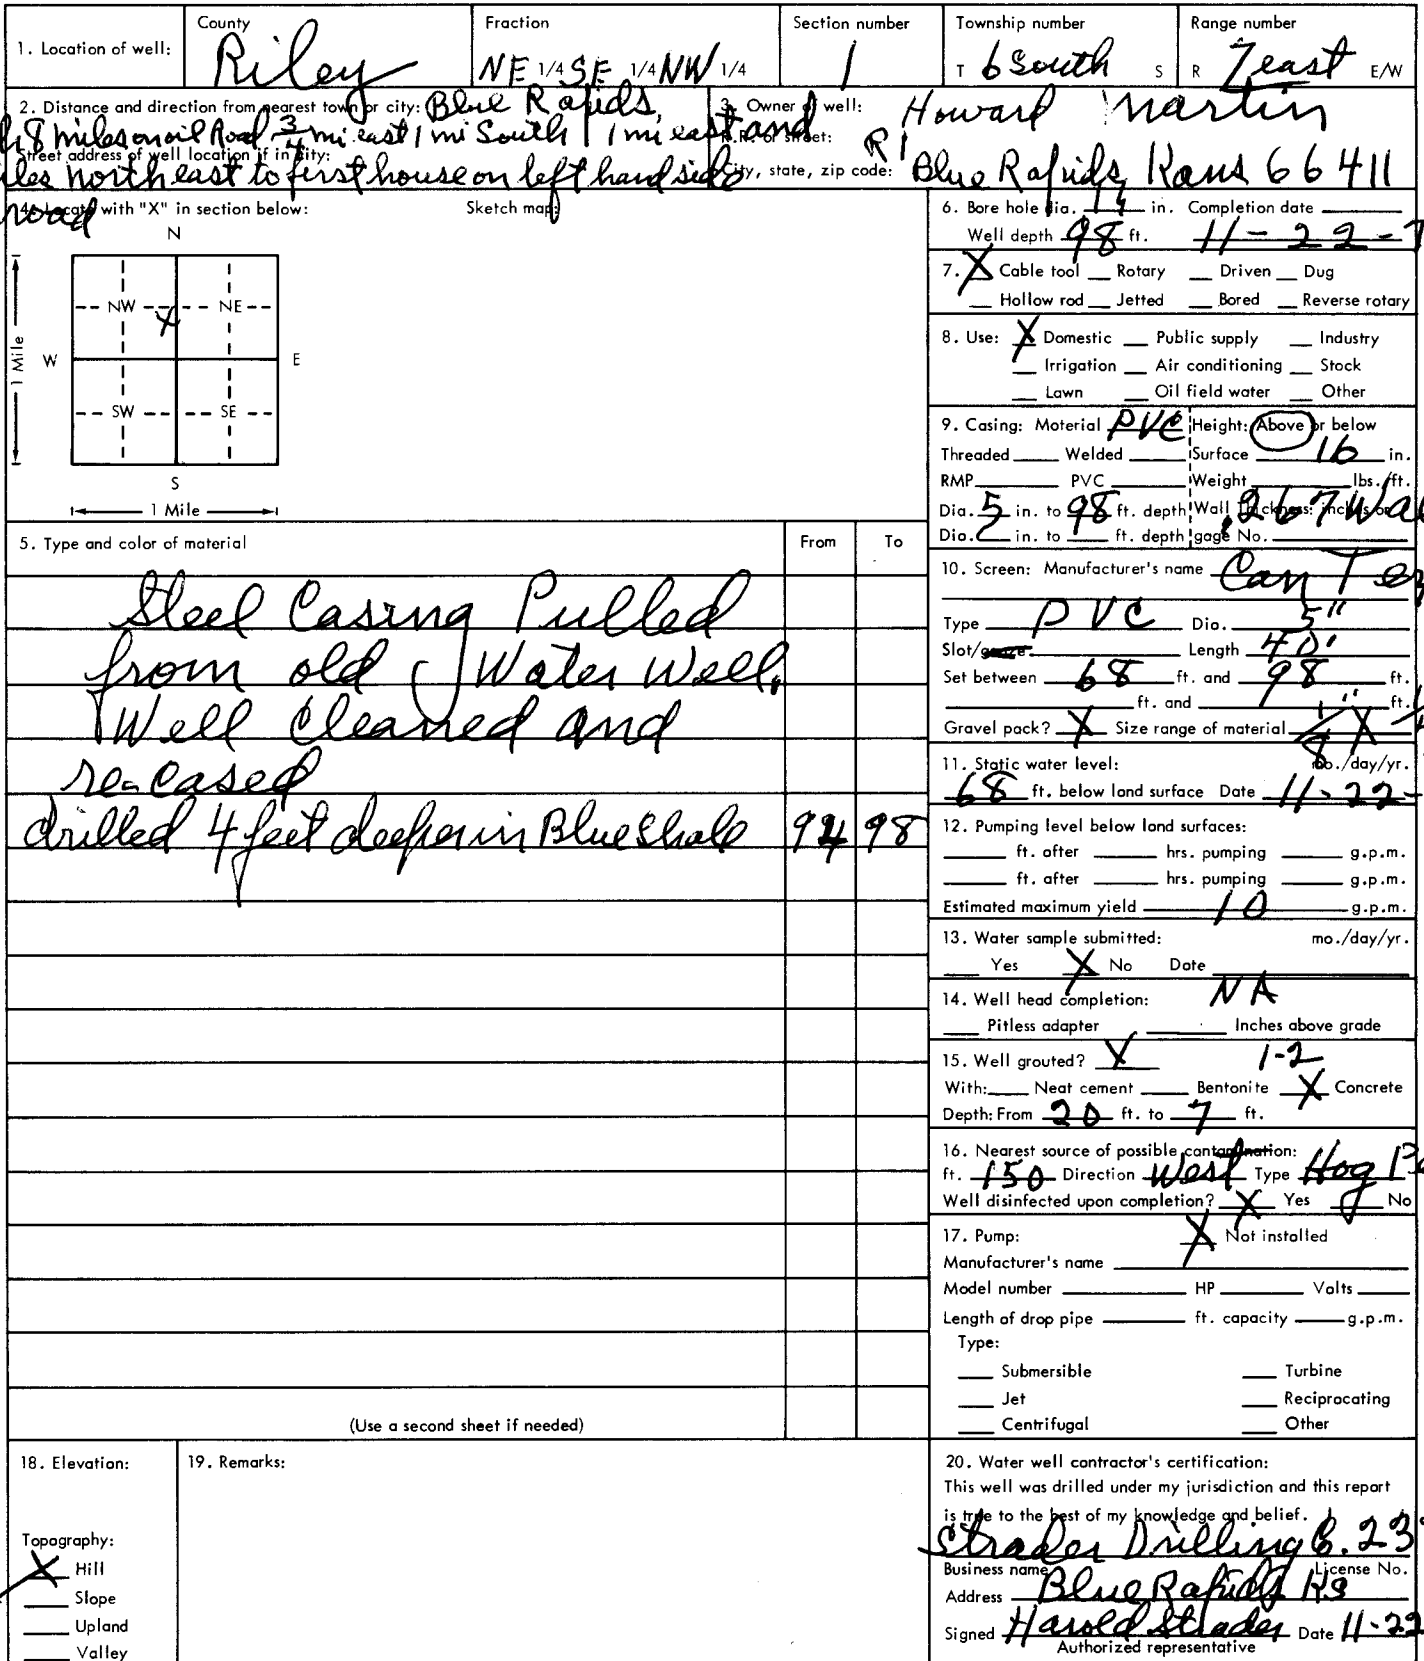 1. Location of well: County Riley Fraction NE 1/4 SE 1/4 NW 1/4 Section number 1 Township number T 6 South S Range number R 7 east E/W
2. Distance and direction from nearest town or city: Blue Rapids,
8 miles on oil Road 3/4 mi east 1 mi South 1 mi east and
Street address of well location if in city:
north east to first house on left hand side
road
3. Owner of well: Howard Martin
R.R. or street: R1
City, state, zip code: Blue Rapids, Kans 66411
4. Locate with "X" in section below: Sketch map:
N
NW NE
X
W E
1 Mile
SW SE
S
1 Mile
6. Bore hole dia. in. Completion date
Well depth 98 ft. 11-22-7
7. X Cable tool Rotary Driven Dug
Hollow rod Jetted Bored Reverse rotary
8. Use: X Domestic Public supply Industry
Irrigation Air conditioning Stock
Lawn Oil field water Other
9. Casing: Material PVC Height: Above or below
Threaded Welded Surface 16 in.
RMP PVC Weight lbs./ft.
Dia. 5 in. to 98 ft. depth Wall Thickness: inches or .267 Wal
Dia. in. to ft. depth gage No.
5. Type and color of material From To
Steel Casing Pulled
from old Water Well.
Well Cleaned and
re-cased
drilled 4 feet deeper in Blue Shale 94 98
(Use a second sheet if needed)
10. Screen: Manufacturer's name Can Te
Type PVC Dia. 5"
Slot/ Length 40'
Set between 68 ft. and 98 ft.
ft. and ft.
Gravel pack? X Size range of material
11. Static water level: mo./day/yr.
68 ft. below land surface Date 11-22-
12. Pumping level below land surfaces:
ft. after hrs. pumping g.p.m.
ft. after hrs. pumping g.p.m.
Estimated maximum yield 10 g.p.m.
13. Water sample submitted: mo./day/yr.
Yes X No Date
14. Well head completion: NA
Pitless adapter Inches above grade
15. Well grouted? X 1-2
With: Neat cement Bentonite X Concrete
Depth: From 20 ft. to 7 ft.
16. Nearest source of possible contamination:
ft. 150 Direction West Type Hog
Well disinfected upon completion? X Yes No
17. Pump: X Not installed
Manufacturer's name
Model number HP Volts
Length of drop pipe ft. capacity g.p.m.
Type:
Submersible Turbine
Jet Reciprocating
Centrifugal Other
18. Elevation:
Topography:
X Hill
Slope
Upland
Valley
19. Remarks:
20. Water well contractor's certification:
This well was drilled under my jurisdiction and this report
is true to the best of my knowledge and belief.
Strader Drilling 23
Business name License No.
Address Blue Rapids Ks
Signed Harold Strader Date 11-22
Authorized representative